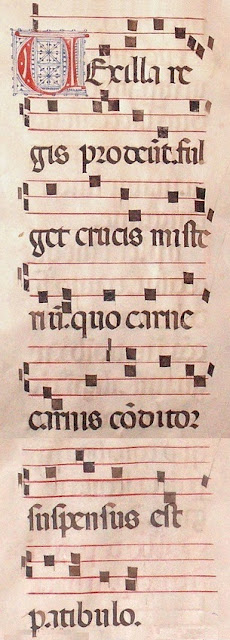 Vexilla re
gis prodeūt. ful
get crucis miste
riū. quo carne
carnis cōditor
suspensus est
patibulo.